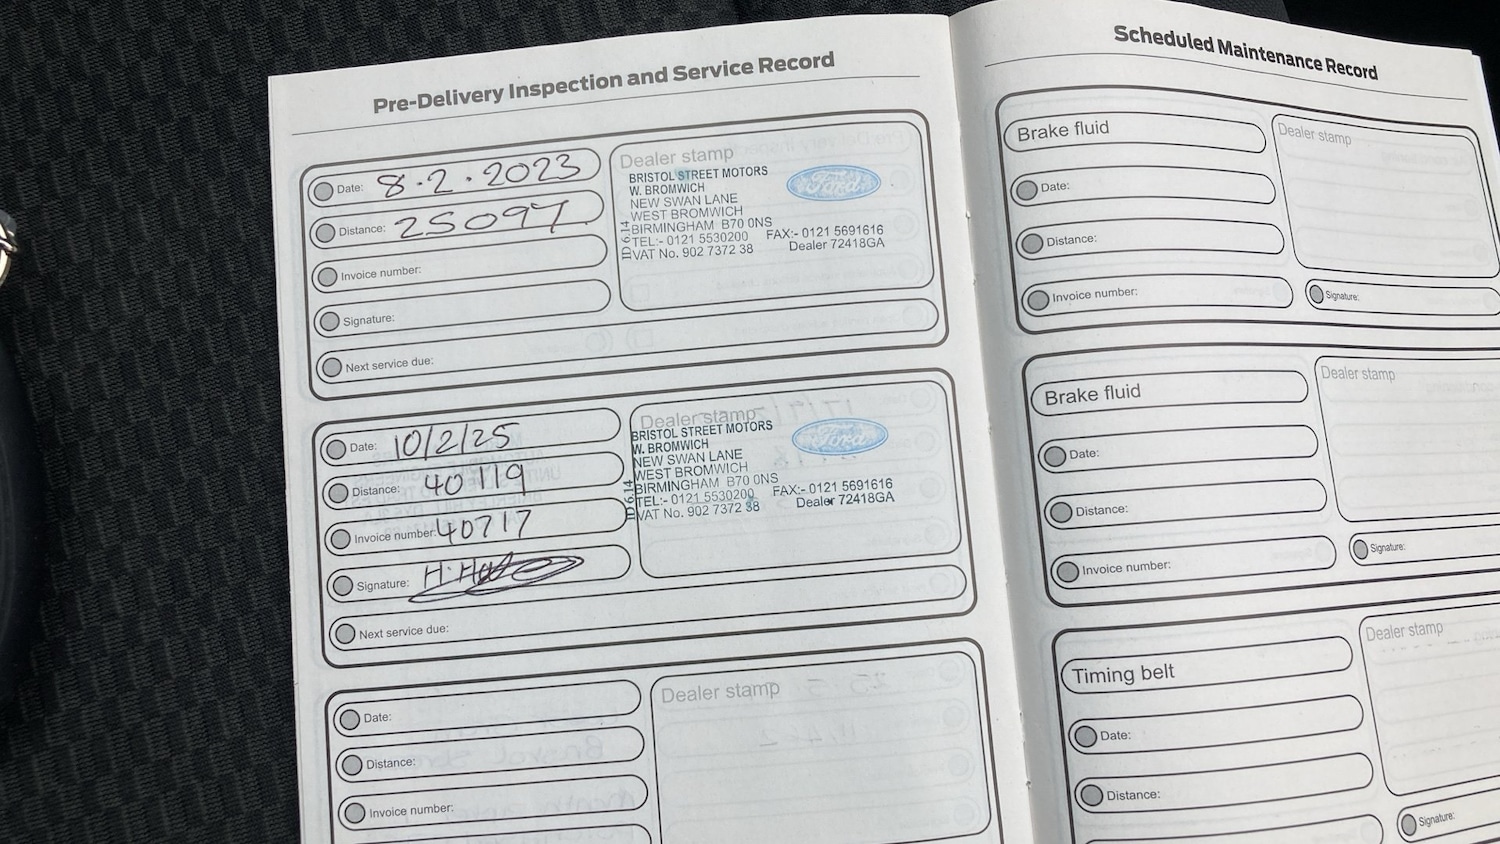 Pre-Delivery Inspection and Service Record
Date: 8.2.2023
Distance: 25097
Invoice number:
Signature:
Next service due:
Dealer stamp
BRISTOL STREET MOTORS
W. BROMWICH
NEW SWAN LANE
WEST BROMWICH
BIRMINGHAM B70 0NS
TEL:- 0121 5530200 FAX:- 0121 5691616
VAT No. 902 7372 38 Dealer 72418GA
ID 6.14
Ford
Date: 10/2/25
Distance:
Invoice number: 40717
Signature:
Next service due:
Dealer stamp
BRISTOL STREET MOTORS
W. BROMWICH
NEW SWAN LANE
WEST BROMWICH
BIRMINGHAM B70 0NS
TEL:- 0121 5530200 FAX:- 0121 5691616
VAT No. 902 7372 38 Dealer 72418GA
ID 6.14
Ford
Date:
Distance:
Invoice number:
Dealer stamp
Scheduled Maintenance Record
Brake fluid
Date:
Distance:
Invoice number:
Dealer stamp
Signature:
Brake fluid
Date:
Distance:
Invoice number:
Dealer stamp
Signature:
Timing belt
Date:
Distance:
Dealer stamp
Signature: